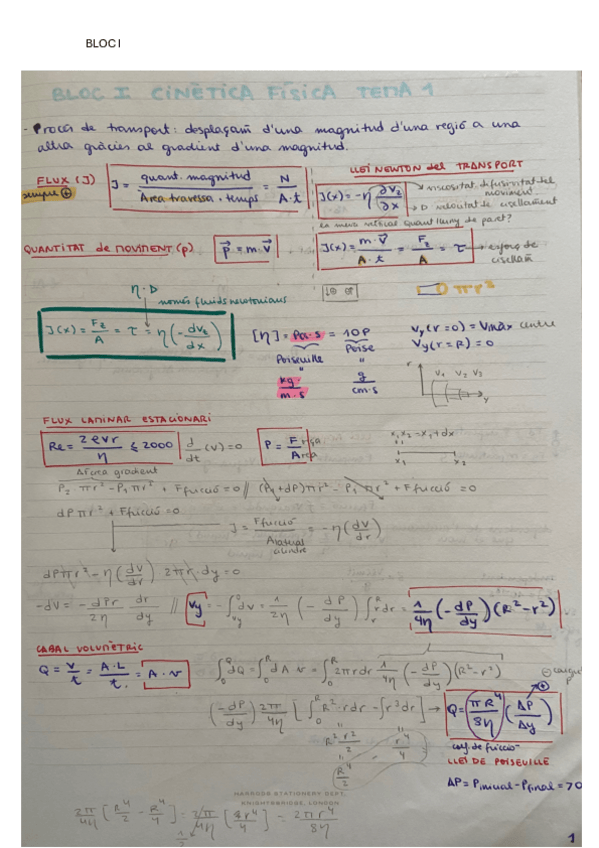 BLOC I
BLOC I CINÈTICA FÍSICA TEMA 1
- Procés de transport: desplaçam. d'una magnitud d'una regió a una
altra gràcies al gradient d'una magnitud.
FLUX (J) J = quant. magnitud / Àrea travessa · temps = N / A·t
sempre ⊕
LLEI NEWTON del TRANSPORT
J(x) = -η ∂v_z/∂x
viscositat
velocitat de cisellament
QUANTITAT de MOVIMENT (p) p⃗ = m·v⃗
J(x) = m·v⃗ / A·t = F_z / A = τ → esforç de
cisellam.
η·D
només fluids newtonians
J(x) = F_z/A = τ = η(-dv_z/dx)
[η] = Pa·s = 10P
Poiseuille Poise
kg/m·s g/cm·s
v_y(r=0) = Vmàx centre
v_y(r=R) = 0
r v₁ v₂ v₃
y
FLUX LAMINAR ESTACIONARI
Re = 2ρvr/η ≤ 2000 d/dt (v) = 0 P = Força/Àrea
x₁ x₂ = x₁ + dx
x₁ x₂
P₂ πr² - P₁ πr² + Ffricció = 0 // (P₁+dP)πr² - P₁πr² + Ffricció = 0
dPπr² + Ffricció = 0
J = Ffricció / Alateral cilindre = -η(dV/dr)
dPπr² - η(dV/dr) 2πr·dy = 0
-dV = -dPr/2η dr/dy // v_y = -∫dv = 1/2η (-dP/dy) ∫_r^R rdr = 1/4η (-dP/dy)(R²-r²)
CABAL VOLUMÈTRIC
Q = V/t = A·L/t = A·v ∫dQ = ∫dA v = ∫_0^R 2πrdr 1/4η (-dP/dy)(R²-r²)
(-dP/dy) 2π/4η [∫_0^R R²·rdr - ∫r³dr] → Q = (πR⁴/8η)(ΔP/Δy)
R²r²/2 - r⁴/4
R⁴/2
coef. de fricció
LLEI DE POISEUILLE
ΔP = Pinicial - Pfinal = 70
HARRODS STATIONERY DEPT.
KNIGHTSBRIDGE, LONDON
2π/4η [R⁴/2 - R⁴/4]
1